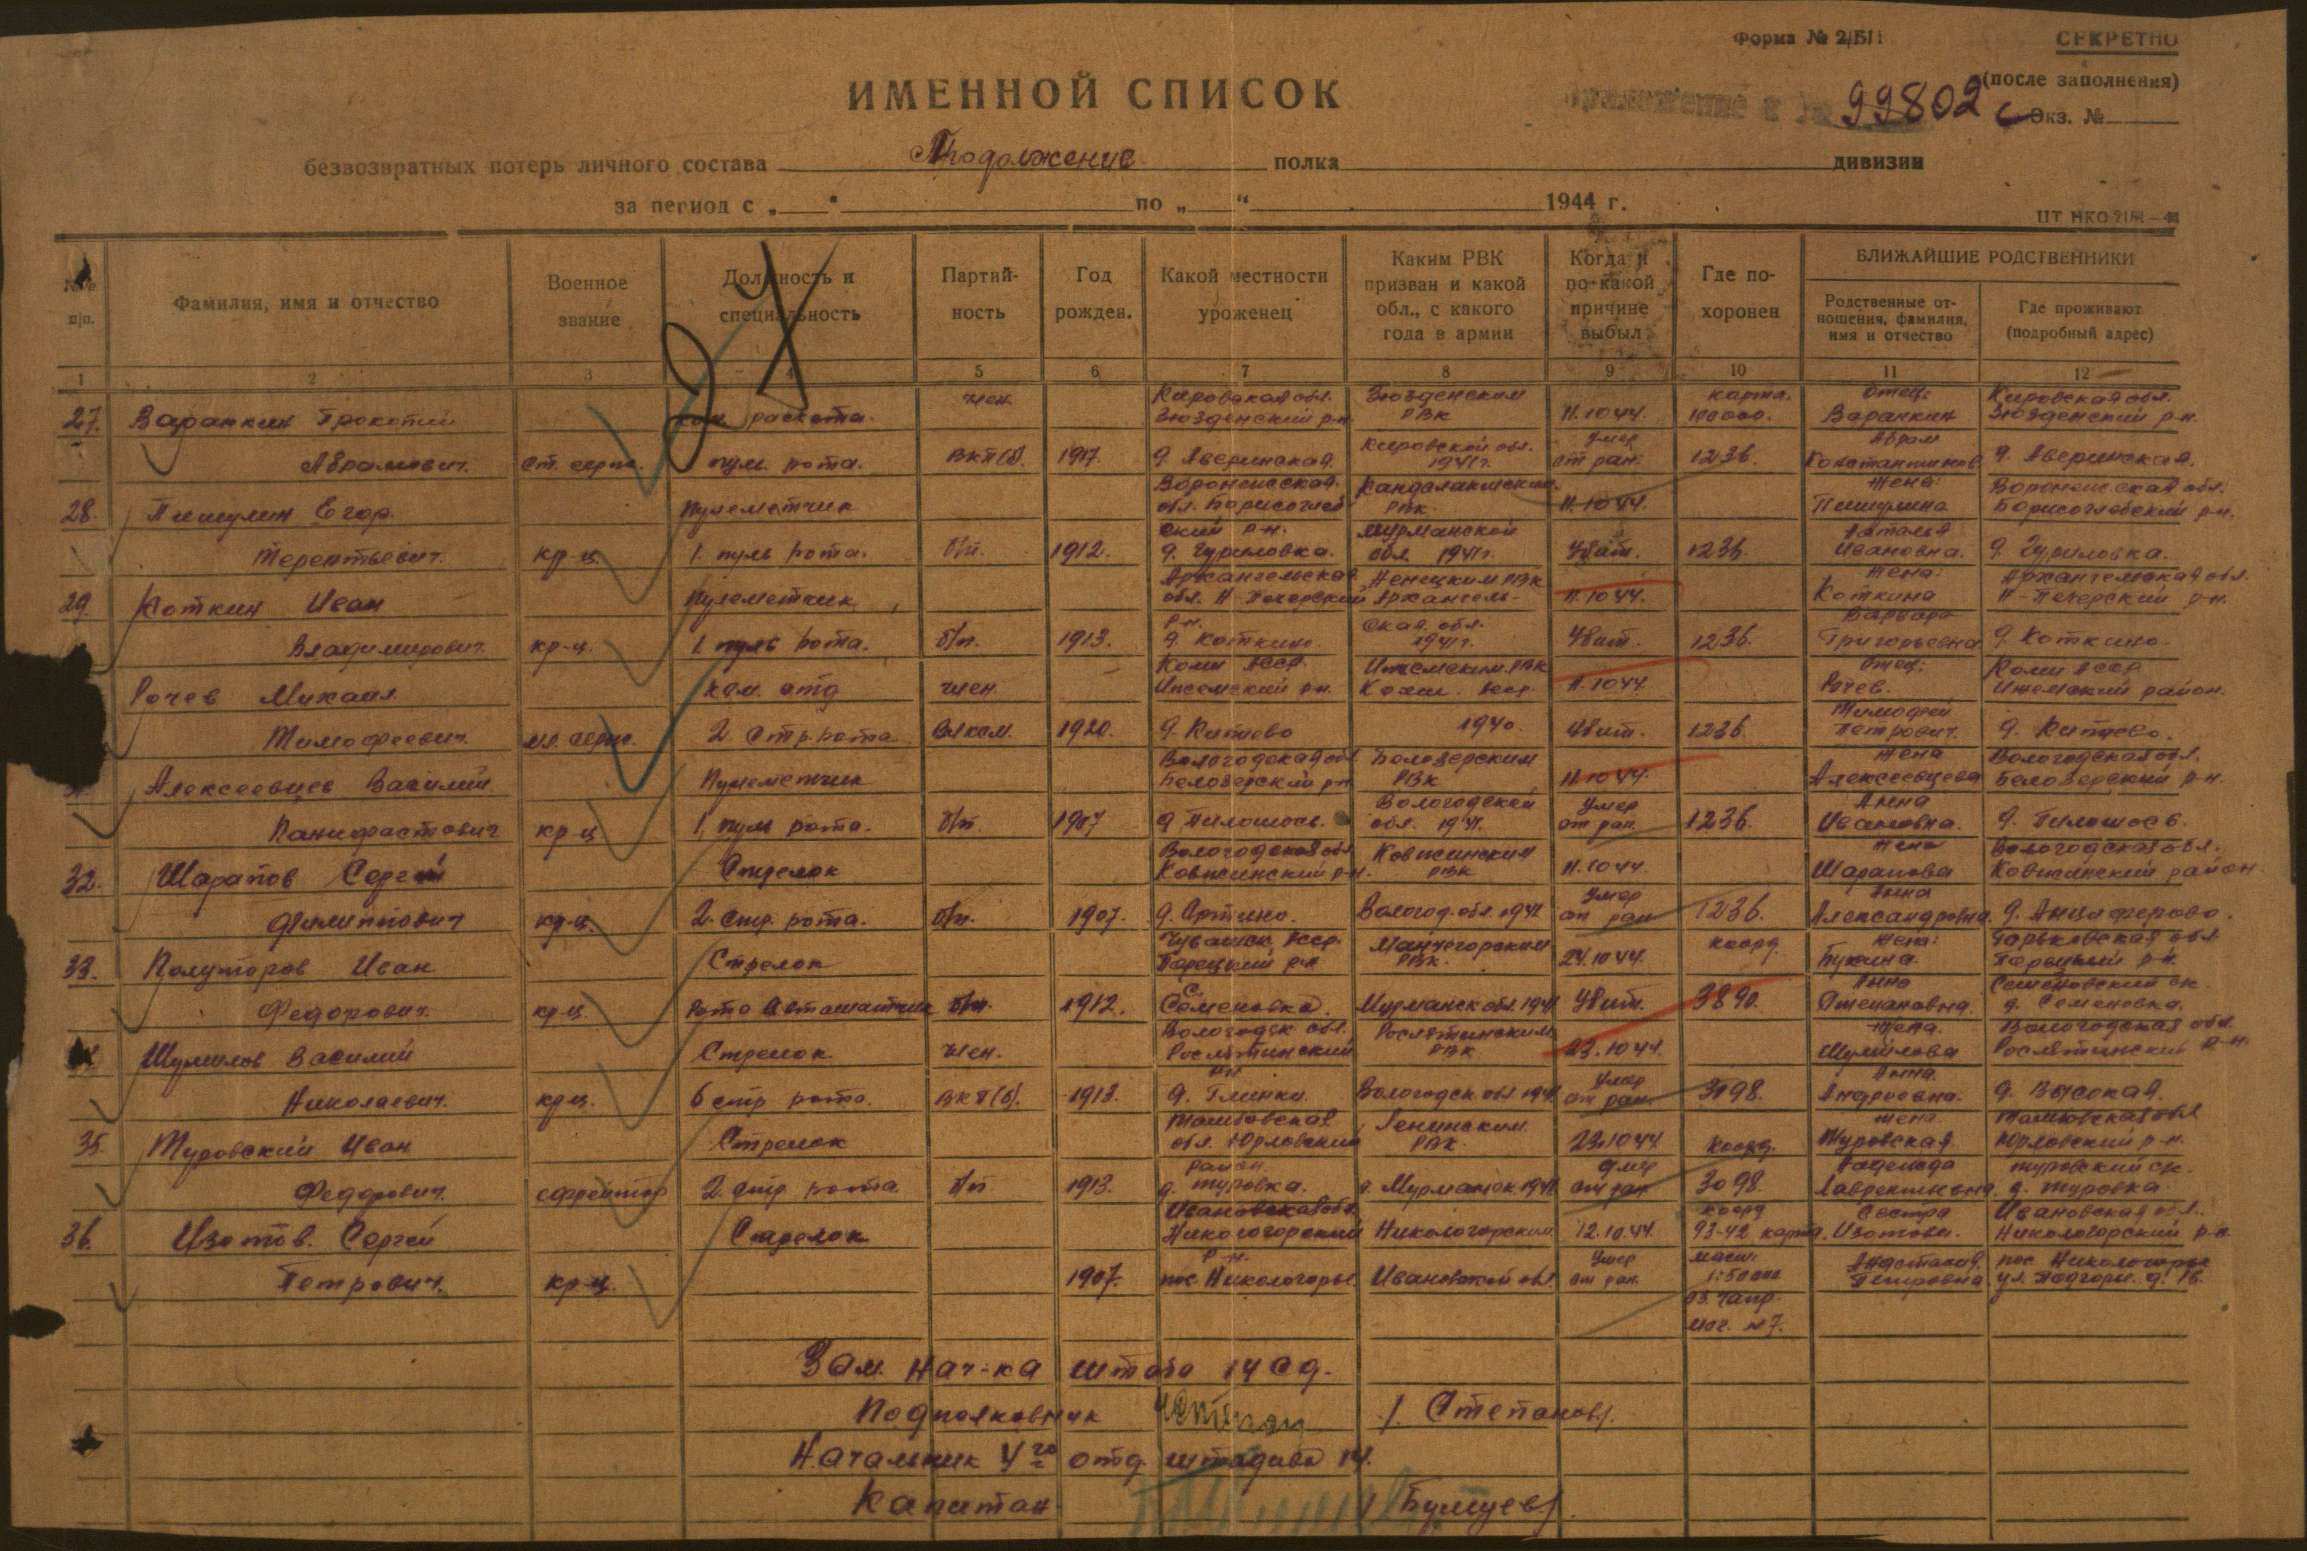 Форма № 2/БП
СЕКРЕТНО
(после заполнения)
ИМЕННОЙ СПИСОК
Приложение к № 99802 с
Экз. №
безвозвратных потерь личного состава Продолжение полка дивизии
за период с „ " по „ " 1944 г.
ЦТ НКО
№№ п/п.
Фамилия, имя и отчество
Военное звание
Должность и специальность
Партийность
Год рожден.
Какой местности уроженец
Каким РВК призван и какой обл., с какого года в армии
Когда и по какой причине выбыл
Где похоронен
БЛИЖАЙШИЕ РОДСТВЕННИКИ
Родственные отношения, фамилия, имя и отчество
Где проживают (подробный адрес)
1 2 3 4 5 6 7 8 9 10 11 12
член Кировская обл. Зюздинским карта. отец. Кировская обл.
27. Варанкин Прокопий ком. расчета. Зюздинский р-н РВК 11.10 44. 100000. Варанкин Зюздинский р-н.
Кировской обл. умер Абрам
Абрамович. ст. серж. пул. рота. ВКП(б). 1917. д. Аверинская. 1941г. от ран. 1236. Константинов. д. Аверинская.
Воронежская Кандалакшским жена: Воронежская обл.
28. Пишулин Егор. Пулеметчик обл. Борисоглеб РВК 11.10 44. Пишулина Борисоглебский р-н.
ский р-н. Мурманской Наталья
Терентьевич. кр-ц. 1. пуль рота. б/п. 1912. д. Чуриловка. обл. 1941г. Убит. 1236. Ивановна. д. Чуриловка.
Архангельская Ненецким РВК жена: Архангельская обл.
29. Коткин Иван Пулеметчик обл. Н-Печерский Архангель- 11.10 44. Коткина Н-Печерский р-н.
р-н. ская обл. Варвара
Владимирович. кр-ц. 1. пуль рота. б/п. 1913. д. Коткино. 1941г. Убит. 1236. Григорьевна д. Коткино.
Коми АССР. Ижемским РВК отец: Коми АССР
Рочев Михаил ком. отд член Ижемский р-н. Коми АССР 11.10 44. Рочев. Ижемский район.
Тимофей
Тимофеевич. мл. серж. 2. стр. рота ВЛКСМ. 1920. д. Кипиево 1940. Убит. 1236. Петрович. д. Кипиево.
Вологодская обл. Белозерским жена Вологодская обл.
Алексеевцев Василий Пулеметчик Белозерский р-н РВК 11.10 44. Алексеевцева Белозерский р-н.
Вологодской умер Анна
кр-ц 1. пуль рота. б/п. 1907 обл. 1941. от ран. 1236. Ивановна.
Вологодская обл. Ковжинским жена Вологодская обл.
32. Шарапов Сергей Стрелок Ковжинский р-н. РВК 11.10 44. Шарапова Ковжинский район
умер Анна
Филиппович кр-ц. 2. стр. рота. б/п. 1907. д. Артино. Вологод. обл. 1941 от ран 1236. Александровна. д. Анциферово.
Чувашск. АССР. Мончегорским коорд. жена: Горьковская обл
33. Полуторов Иван Стрелок Порецкий р-н РВК. 24.10 44. Букина.
Анна Семеновский с/с.
Федорович. кр-ц рота Автоматчик б/п. 1912. с. Семеновка. Мурманск обл. 1941 Убит. 3890. Степановна. д. Семеновка.
Вологодск. обл. Рослятинским жена. Вологодская обл.
Шумилов Василий Стрелок Член. Рослятинский РВК 23.10 44. Шумилова Рослятинский р-н.
р-н умер Анна.
Николаевич. кр-ц. 6 стр рота. ВКП(б). 1913. д. Глинки. Вологодск обл. 1941 от ран 3098. Андреевна. д. Высокая.
Тамбовская Ленинским жена Тамбовская обл
35. Туровский Иван Стрелок обл. Юрловский РВК. 23.10 44 коорд. Туровская Юрловский р-н.
район. умер Надежда Туровский с/с.
Федорович. ефрейтор 2. стр рота б/п 1913. д. Туровка. г. Мурманск 1941 от ран 3098. Лаврентьевна. д. Туровка.
Ивановская обл. коорд Сестра Ивановская обл.
36. Изотов. Сергей Стрелок Никологорский Никологорским 12.10.44. 93-42 карта. Изотова. Никологорский р-н
р-н. умер масш. Анастасия
Петрович. кр-ц. 1907. пос. Никологоры. Ивановской обл. от ран. 1:50000 Петровна пос. Никологоры
мог. №7.
Зам. Нач-ка штаба 14 СД.
Подполковник / Степанов/.
Начальник 4го отд. штадива 14.
Капитан /